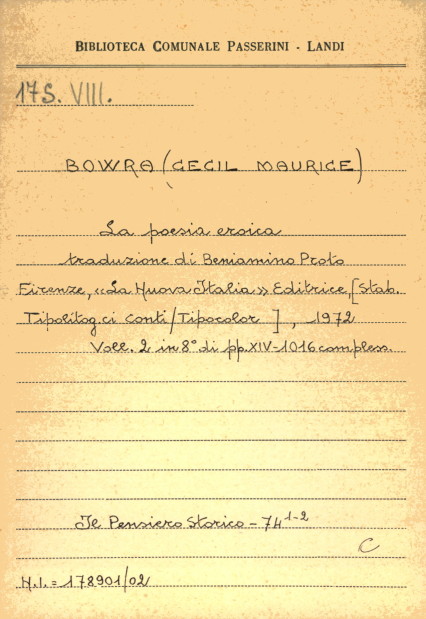 BIBLIOTECA COMUNALE PASSERINI - LANDI
17S. VIII.
BOWRA (CECIL MAURICE)
La poesia eroica
traduzione di Beniamino Proto
Firenze, «La Nuova Italia» Editrice, [Stab.
Tipolitog.ci conti/Tipocolor], 1972
Voll. 2 in 8° di pp. XIV-1016 compless.
Il Pensiero Storico - 74 1-2
C
N.I. = 178901/02